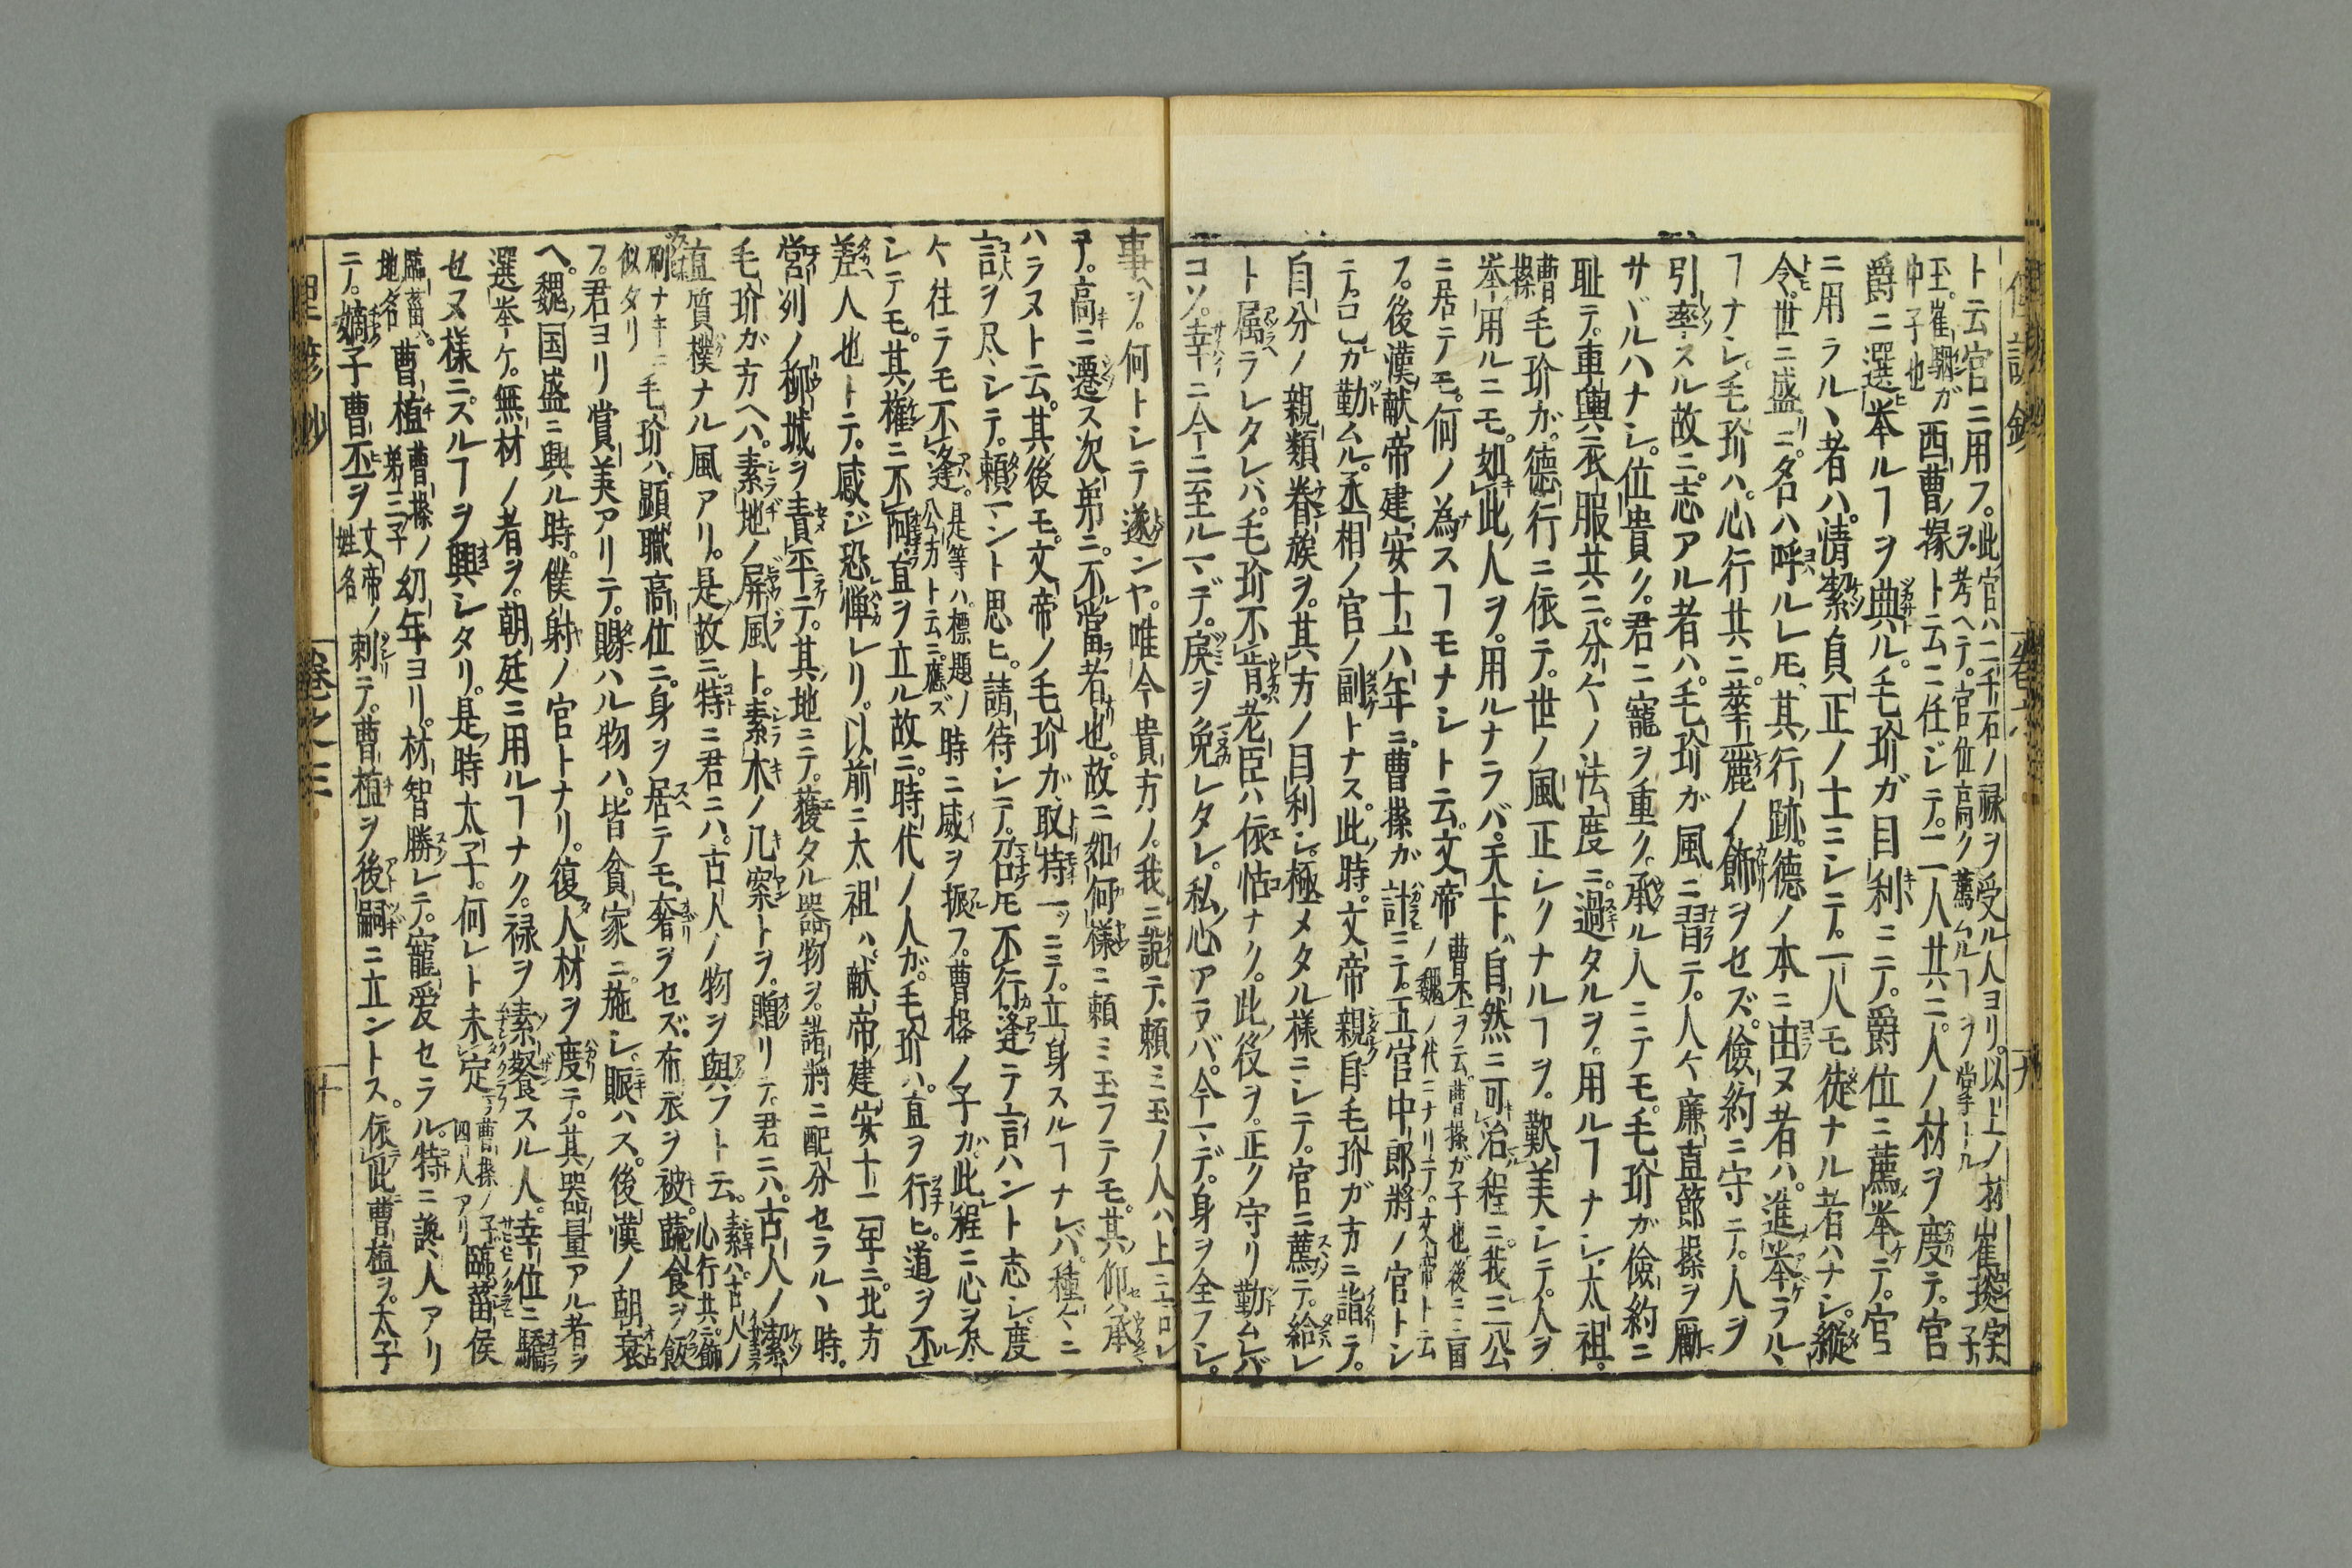 ト云官ニ用フ。此官ハ二千石ノ禄ヲ受ル人ヨリ。以上ノ
ヲ考ヘテ。官位高ク薦ムルヿヲ掌トル
崔琰字
子
玉。崔駰ガ
中子也
西曹ノ掾ト云ニ任ジテ。二人共ニ。人ノ材ヲ度テ。官
爵ニ選挙ルヿヲ典ル。毛玠ガ目利ニテ。爵位ニ薦挙テ。官
ニ用ラルヽ者ハ。清絜貞正ノ士ニシテ。一人モ徒ナル者ハナシ。縦
令。世ニ盛ニ。名ハ呼ルレ𪜈。其行跡。徳ノ本ニ由ヌ者ハ。進挙ラルヽ
ヿナシ。毛玠ハ。心行共ニ。華麗ノ飾ヲセズ。倹約ニ守テ。人ヲ
引率スル故ニ。志アル者ハ。毛玠ガ風ニ習テ。人々廉直節操ヲ厲
サヾルハナシ。位貴ク。君ニ寵ヲ重ク。承ル人ニテモ。毛玠ガ倹約ニ
耻テ。車輿衣服共ニ。分々ノ法度ニ。過タルヲ。用ルヿナシ。太祖。
曹
操
毛玠ガ。徳行ニ依テ。世ノ風正シクナルヿヲ。歎美シテ。人ヲ
挙用ルニモ。如此人ヲ。用ルナラバ。天下自然ニ可治程ニ。我三公
ニ居テモ。何ノ為スヿモナシト云。文帝
曹丕ヲ云。曹操ガ子也。後ニ三国
ノ魏ノ代ニナリテ。文帝ト云
フ。後漢献帝建安十六年ニ。曹操ガ計ニテ。五官中郎将ノ官トシ
テ。己カ勤ムル。丞相ノ官ノ副トナス。此時。文帝親自毛玠ガ方ニ詣テ。
自分ノ親類眷族ヲ。其方ノ目利シ。極メタル様ニシテ。官ニ薦テ。給レ
ト属ラレタレバ。毛玠不肯。老臣ハ依怙ナク。此役ヲ。正ク守リ勤ムレバ
コソ。幸ニ今ニ至ルマデ。戻ヲ免レタレ。私心アラバ。今マデ。身ヲ全フシ。
事ヲ。何トシテ遂ンヤ。唯今貴方ノ。我ニ説テ。頼ミ玉ノ人ハ上ニ云レ
ヲ。高ニ遷ス次第ニ。不当者也。故ニ如何様ニ頼ミ玉フテモ。其仰ハ承
ハラヌト云。其後モ。文帝ノ毛玠ガ取持一ッニテ。立身スルヿナレバ。種々ニ
詞ヲ尽シテ。頼マント思ヒ。請待シテ。召𪜈不行。逢テ言ハント志シ。度
々往テモ不逢。
是等ハ。標題ノ
公方ト云ニ。応ズ
時ニ威ヲ振フ。曹操ノ子ガ。此程ニ心ヲ尽
シテモ。其権ニ不阿。直ヲ立ル故ニ。時代ノ人ガ。毛玠ハ。直ヲ行ヒ。道ヲ不
差人也トテ。感ジ恐憚レリ。以前ニ太祖ハ。献帝建安十二年ニ。北方
営州ノ柳城ヲ責平テ。其地ニテ。獲タル器物ヲ。諸将ニ配分セラルヽ時。
毛玠ガ方ヘハ。素地ノ屏風ト。素木ノ几案トヲ。贈リテ。君ニハ。古人ノ絜
直質樸ナル風アリ。是故ニ。特ニ君ニハ。古人ノ物ヲ與フト云。
素ハ。古人ノ
心行共ニ。飾
刷ナキニ
似タリ
毛玠ハ。顕職高位ニ。身ヲ居テモ。奢ヲセズ。布衣ヲ被。蔬食ヲ飯
フ。君ヨリ賞美アリテ。賜ハル物ハ。皆貧家ニ。施シ。賑ハス。後漢ノ朝衰
ヘ。魏国盛ニ興ル時。僕射ノ官トナリ。復人材ヲ度テ。其器量アル者ヲ
選挙ケ。無材ノ者ヲ。朝廷ニ用ルヿナク。禄ヲ素餐スル人。幸位ニ驕
セヌ様ニスルヿヲ興シタリ。是時太子。何レト未定
曹操ノ子
四人アリ
臨菑侯
臨菑ハ。
地名
曹植
曹操ノ
第三子
幼年ヨリ。材智勝レテ。寵愛セラル。特ニ譽人アリ
ニノ。嫡子曹丕ヲ
文帝ノ
姓名
刺テ。曹植ヲ後嗣ニ立ントス。依此曹植ヲ。太子
巻之三
十